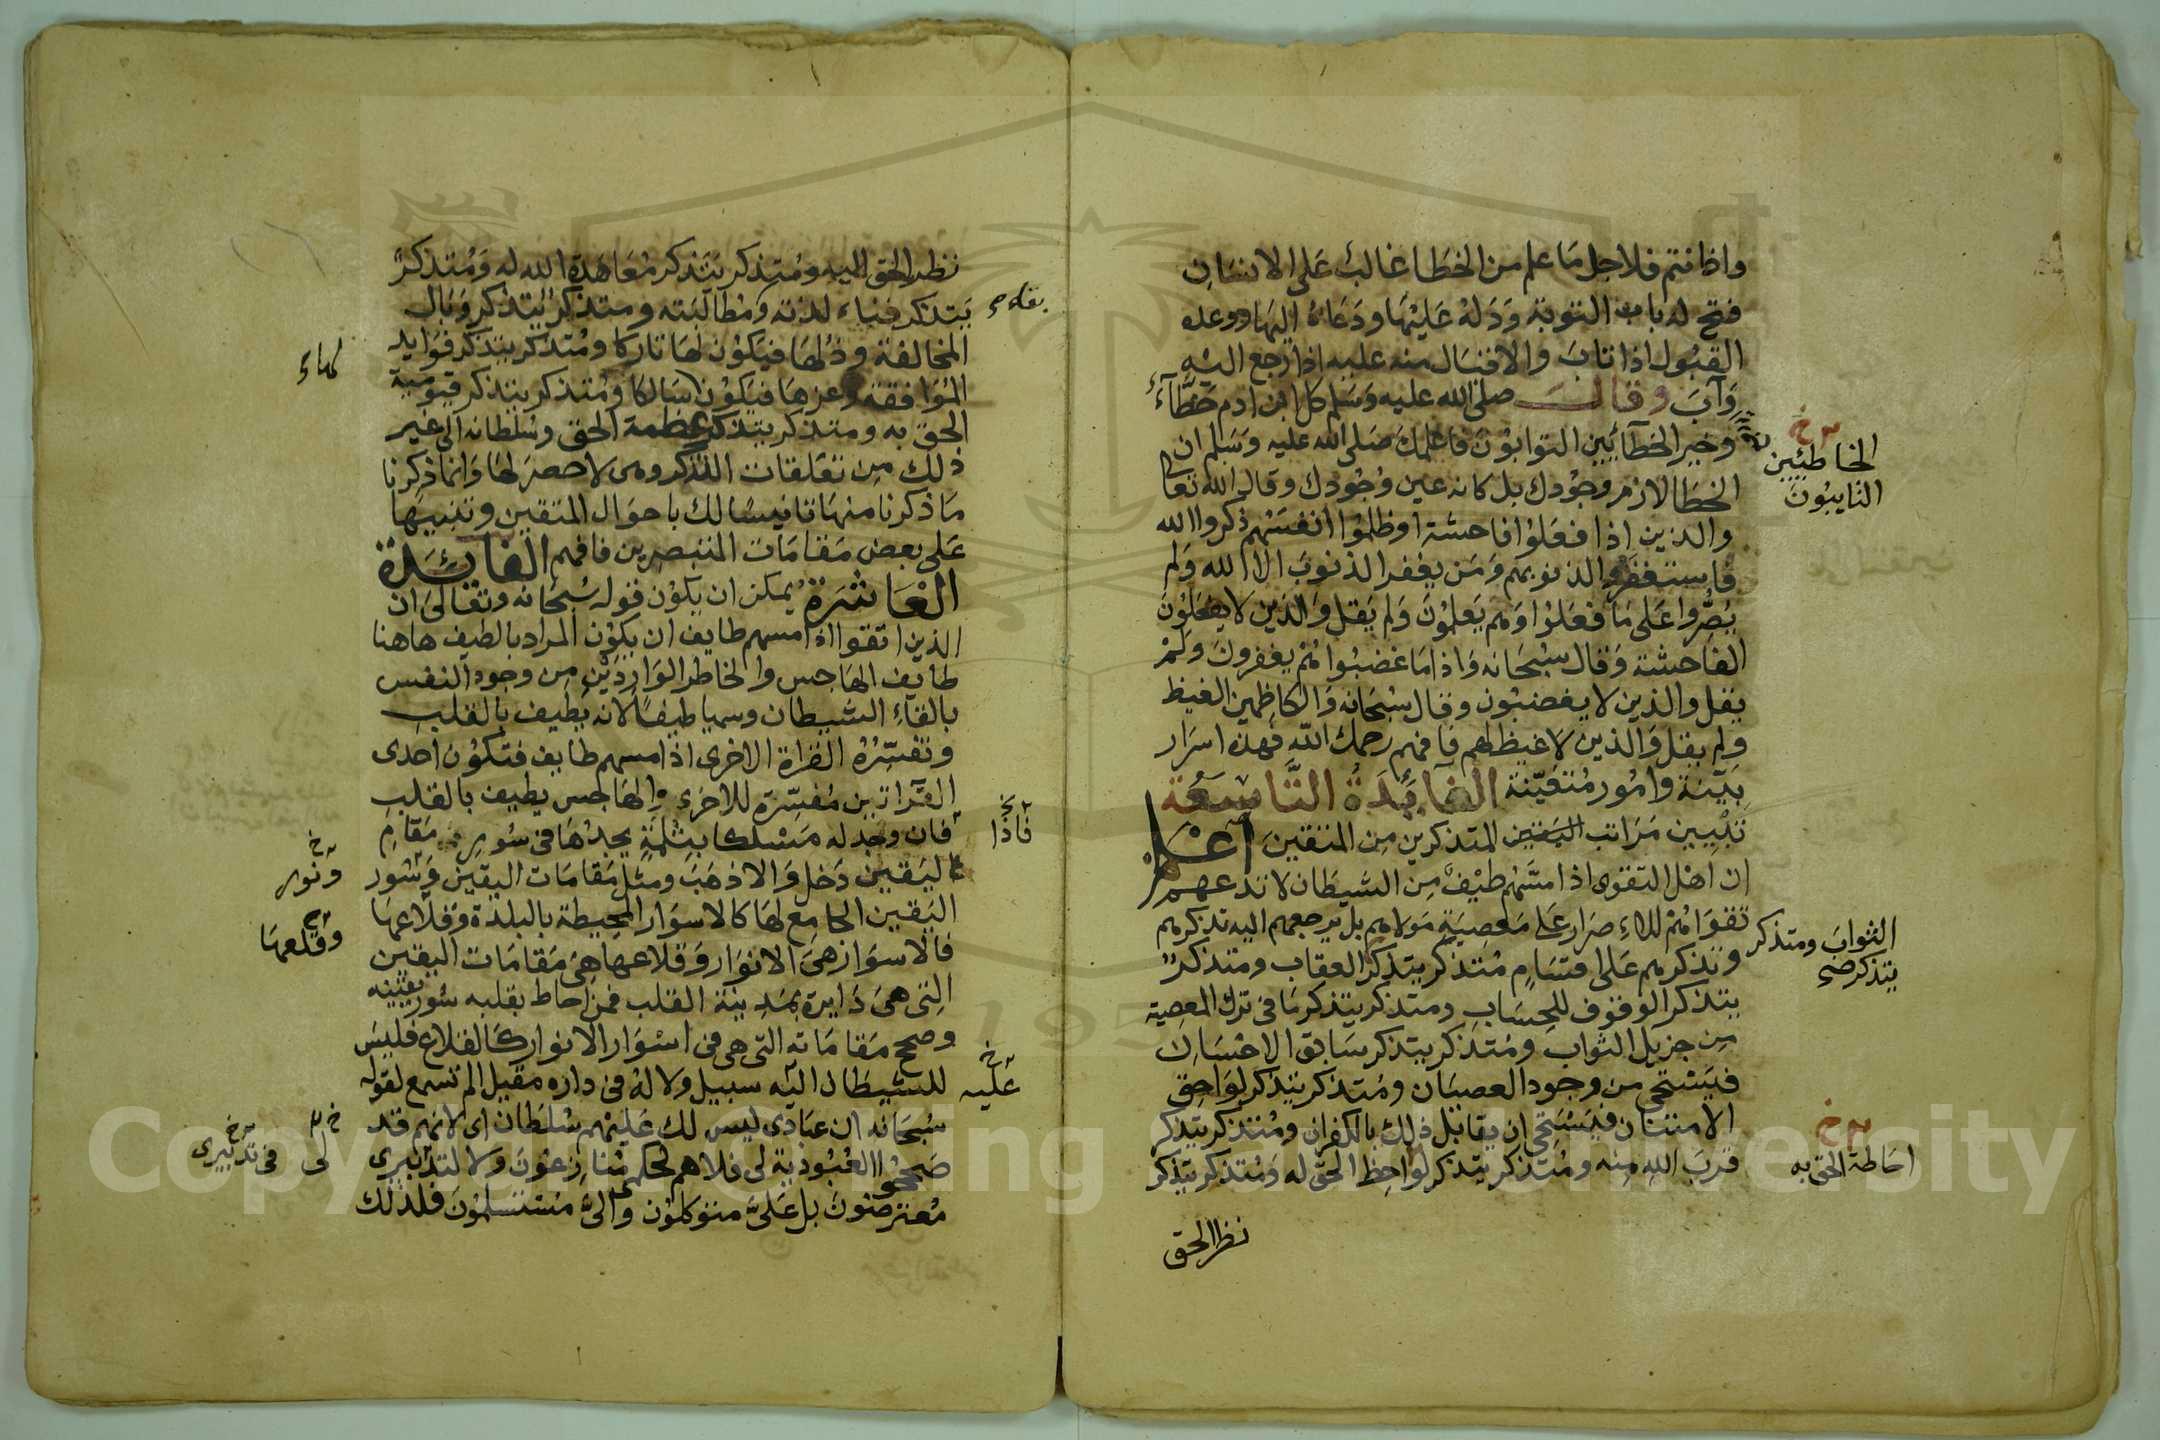 واذا نتم فلاجل ما علم من الخطا غالب على الانسان
فتح له باب التوبة ودله عليها ودعاه اليها ووعده
القبول اذا تاب والاقبال منه عليه اذا رجع اليه
وآب وقال صلى الله عليه وسلم كل ابن ادم خطآء
وخير الخطآيين التوابون فاعلمك صلى الله عليه وسلم ان
الخطا لازم وجودك بل كانه عين وجودك وقال الله تعالى
والذين اذا فعلوا فاحشة او ظلموا انفسهم ذكروا الله
فاستغفروا لذنوبهم ومن يغفر الذنوب الا الله ولم
يصروا على ما فعلوا وهم يعلمون ولم يقل والذين لا يفعلون
الفاحشة وقال سبحانه واذا ما غضبوا هم يغفرون ولم
يقل والذين لا يغضبون وقال سبحانه والكاظمين الغيظ
ولم يقل والذين لا غيظ لهم فافهم رحمك الله فهذه اسرار
بينة وامور متعينة الفائدة التاسعة
تبيين مراتب المتذكرين من المتقين اعلم
ان اهل التقوى اذا مسهم طيف من الشيطان لا تدعهم
تقواهم للاصرار على معصية مولاهم بل يرجعهم اليه تذكرهم
وتذكرهم على اقسام متذكر يتذكر العقاب ومتذكر
يتذكر الوقوف للحساب ومتذكر يتذكر ما في ترك المعصية
من جزيل الثواب ومتذكر يتذكر سابق الاحسان
فيستحي من وجود العصيان ومتذكر يتذكر لواحق
الامتنان فيستحي ان يقابل ذلك بالكفران ومتذكر يتذكر
قرب الله منه ومتذكر يتذكر لواحظ الحق له ومتذكر يتذكر
نظر الحق
الخاطئين خ
التايبون
الثواب ومتذكر
يتذكر صح
خ
احاطة الحق به
نظر الحق اليه ومتذكر يتذكر معاهدة الله له ومتذكر
يتذكر فناء لذته ومطالبته ومتذكر يتذكر وبال
المخالفة وذلها فيكون لها تاركا ومتذكر يتذكر فوايد
الموافقة وعزها فيكون سالكا ومتذكر يتذكر قيومية
الحق به ومتذكر يتذكر عظمة الحق وسلطانه الى غير
ذلك من تعلقات التذكر وهي لا حصر لها وانما ذكرنا
ما ذكرنا منها تانيسا لك باحوال المتقين وتنبيها
على بعض مقامات المتبصرين فافهم الفائدة
العاشرة يمكن ان يكون قوله سبحانه وتعالى ان
الذين اتقوا اذا مسهم طايف ان يكون المراد بالطيف هاهنا
طايف الهاجس والخاطر الواردين من وجود النفس
بالقاء الشيطان وسميا طيفا لانه يطيف بالقلب
وتفسره القراة الاخرى اذا مسهم طايف فتكون احدى
القراتين مفسرة للاخرى والهاجس يطيف بالقلب
فان وجد له مسلكا بثلمة يجدها في سور مقام
اليقين دخل والا ذهب ومثل مقامات اليقين وسور
اليقين الجامع لها كالاسوار المحيطة بالبلدة وقلاعها
فالاسوار هي الانوار وقلاعها هي مقامات اليقين
التي هي دايرة بمدينة القلب فمن احاط بقلبه سور يقينه
وصحح مقاماته التي هي في اسوار الانوار كالقلاع فليس
للشيطان اليه سبيل ولا له في داره مقيل الم تسمع لقوله
سبحانه ان عبادي ليس لك عليهم سلطان اي لانهم قد
صححوا العبودية لي فلاهم لحكمي منازعون ولا لتدبيري
معترضون بل علي متوكلون والي مستسلمون فلذلك
لها
فاذا خ
ونور خ
وقلعها
عليه خ
لي خ
في تدبيري خ
Copyright © King Saud University
195